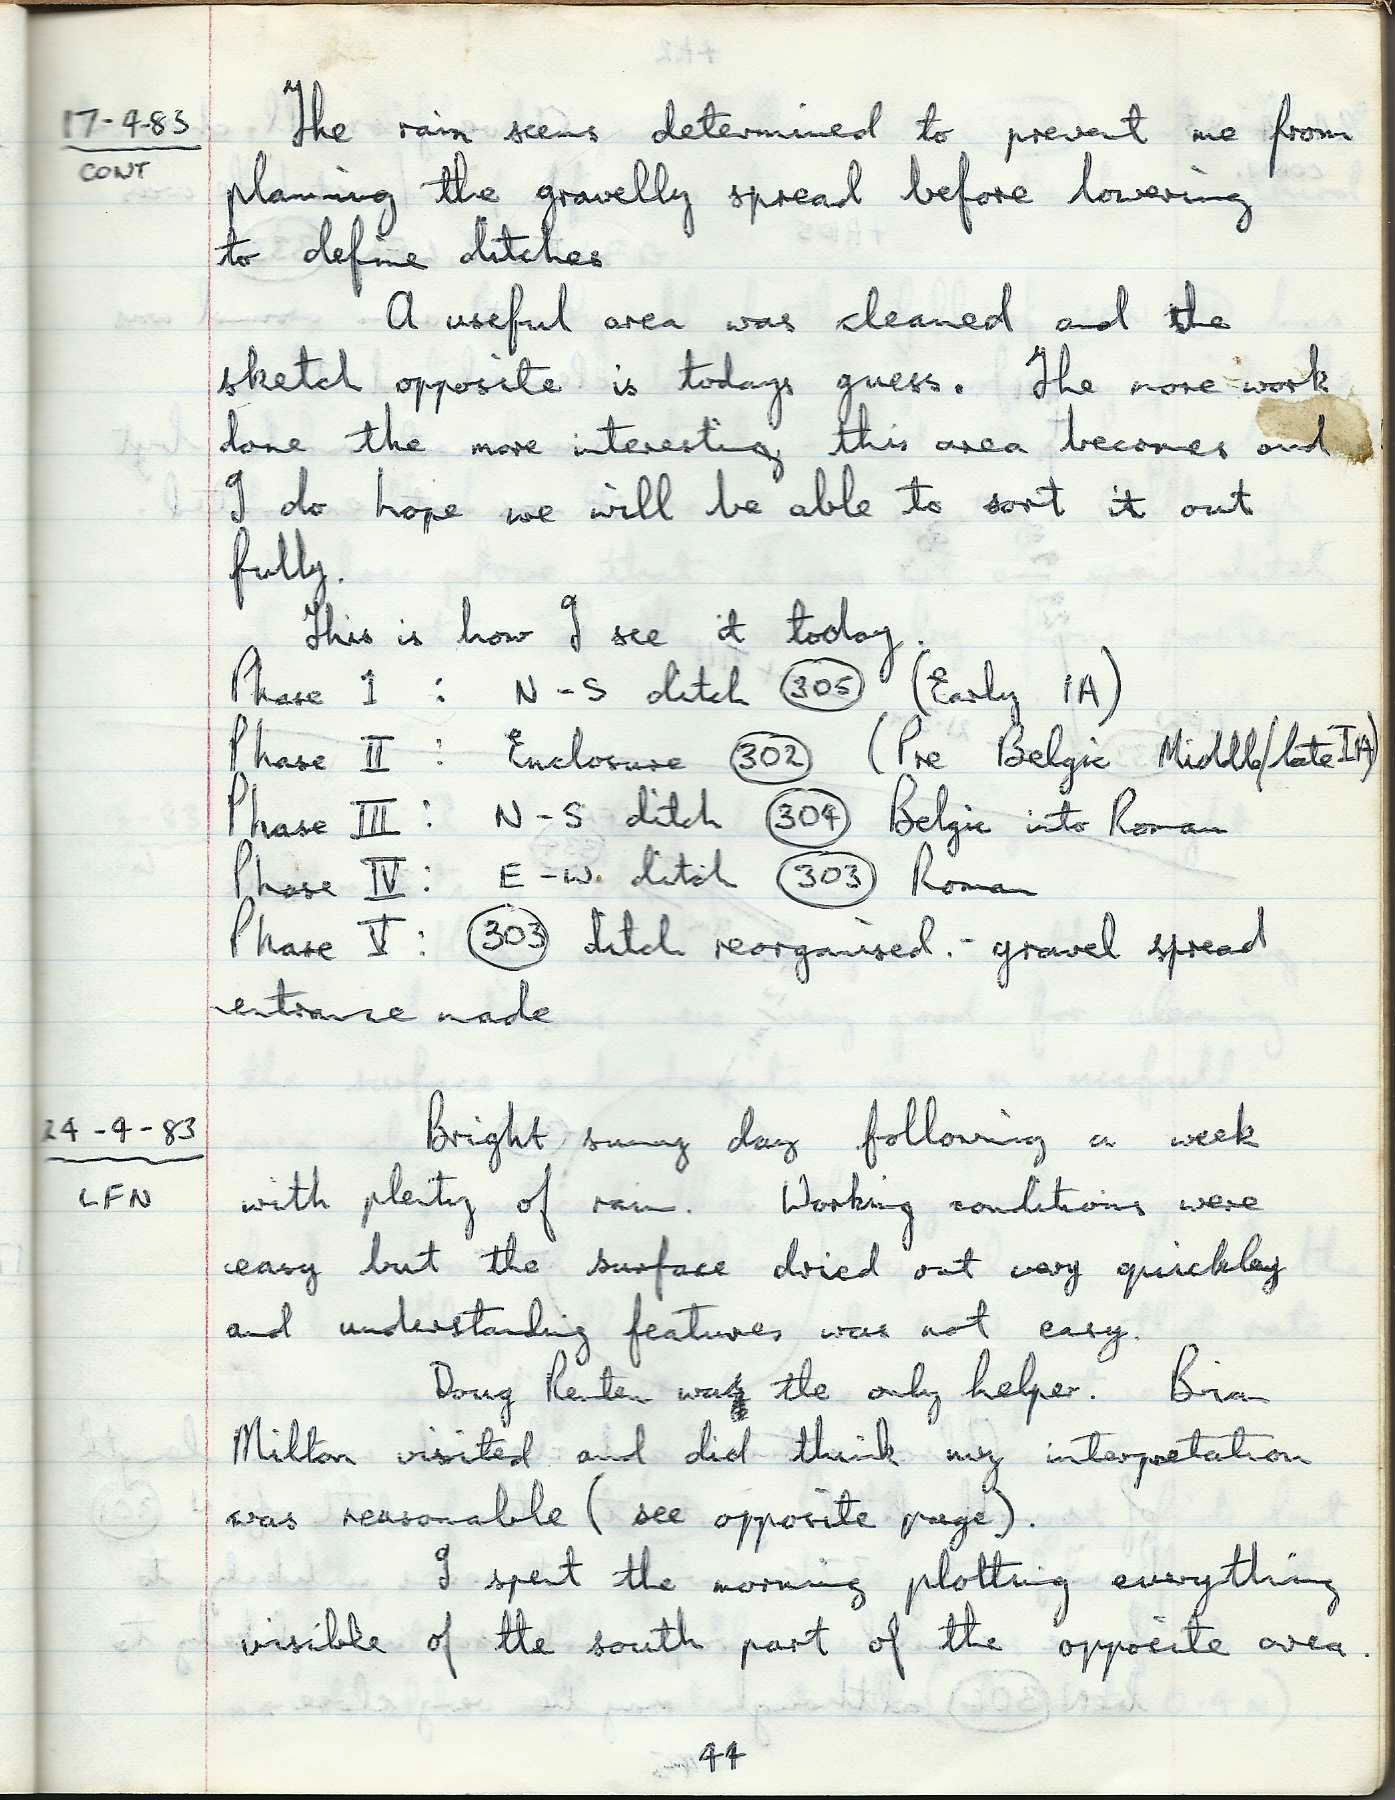 17-4-83
CONT
The rain seems determined to prevent me from
planning the gravelly spread before lowering
to define ditches
A useful area was cleaned and the
sketch opposite is todays guess. The more work
done the more interesting this area becomes and
I do hope we will be able to sort it out
fully.
This is how I see it today.
Phase I : N-S ditch 305 (Early IA)
Phase II : Enclosure 302 (Pre Belgic Middle/late IA)
Phase III : N-S ditch 304 Belgic into Roman
Phase IV : E-W. ditch 303 Roman
Phase V : 303 ditch reorganised. - gravel spread
entrance made
24-4-83
LFN
Bright sunny day following a week
with plenty of rain. Working conditions were
easy but the surface dried out very quickley
and understanding features was not easy.
Doug was the only helper. Brian
Milton visited and did think my interpretation
was reasonable (see opposite page).
I spent the morning plotting everything
visible of the south part of the opposite area.
44